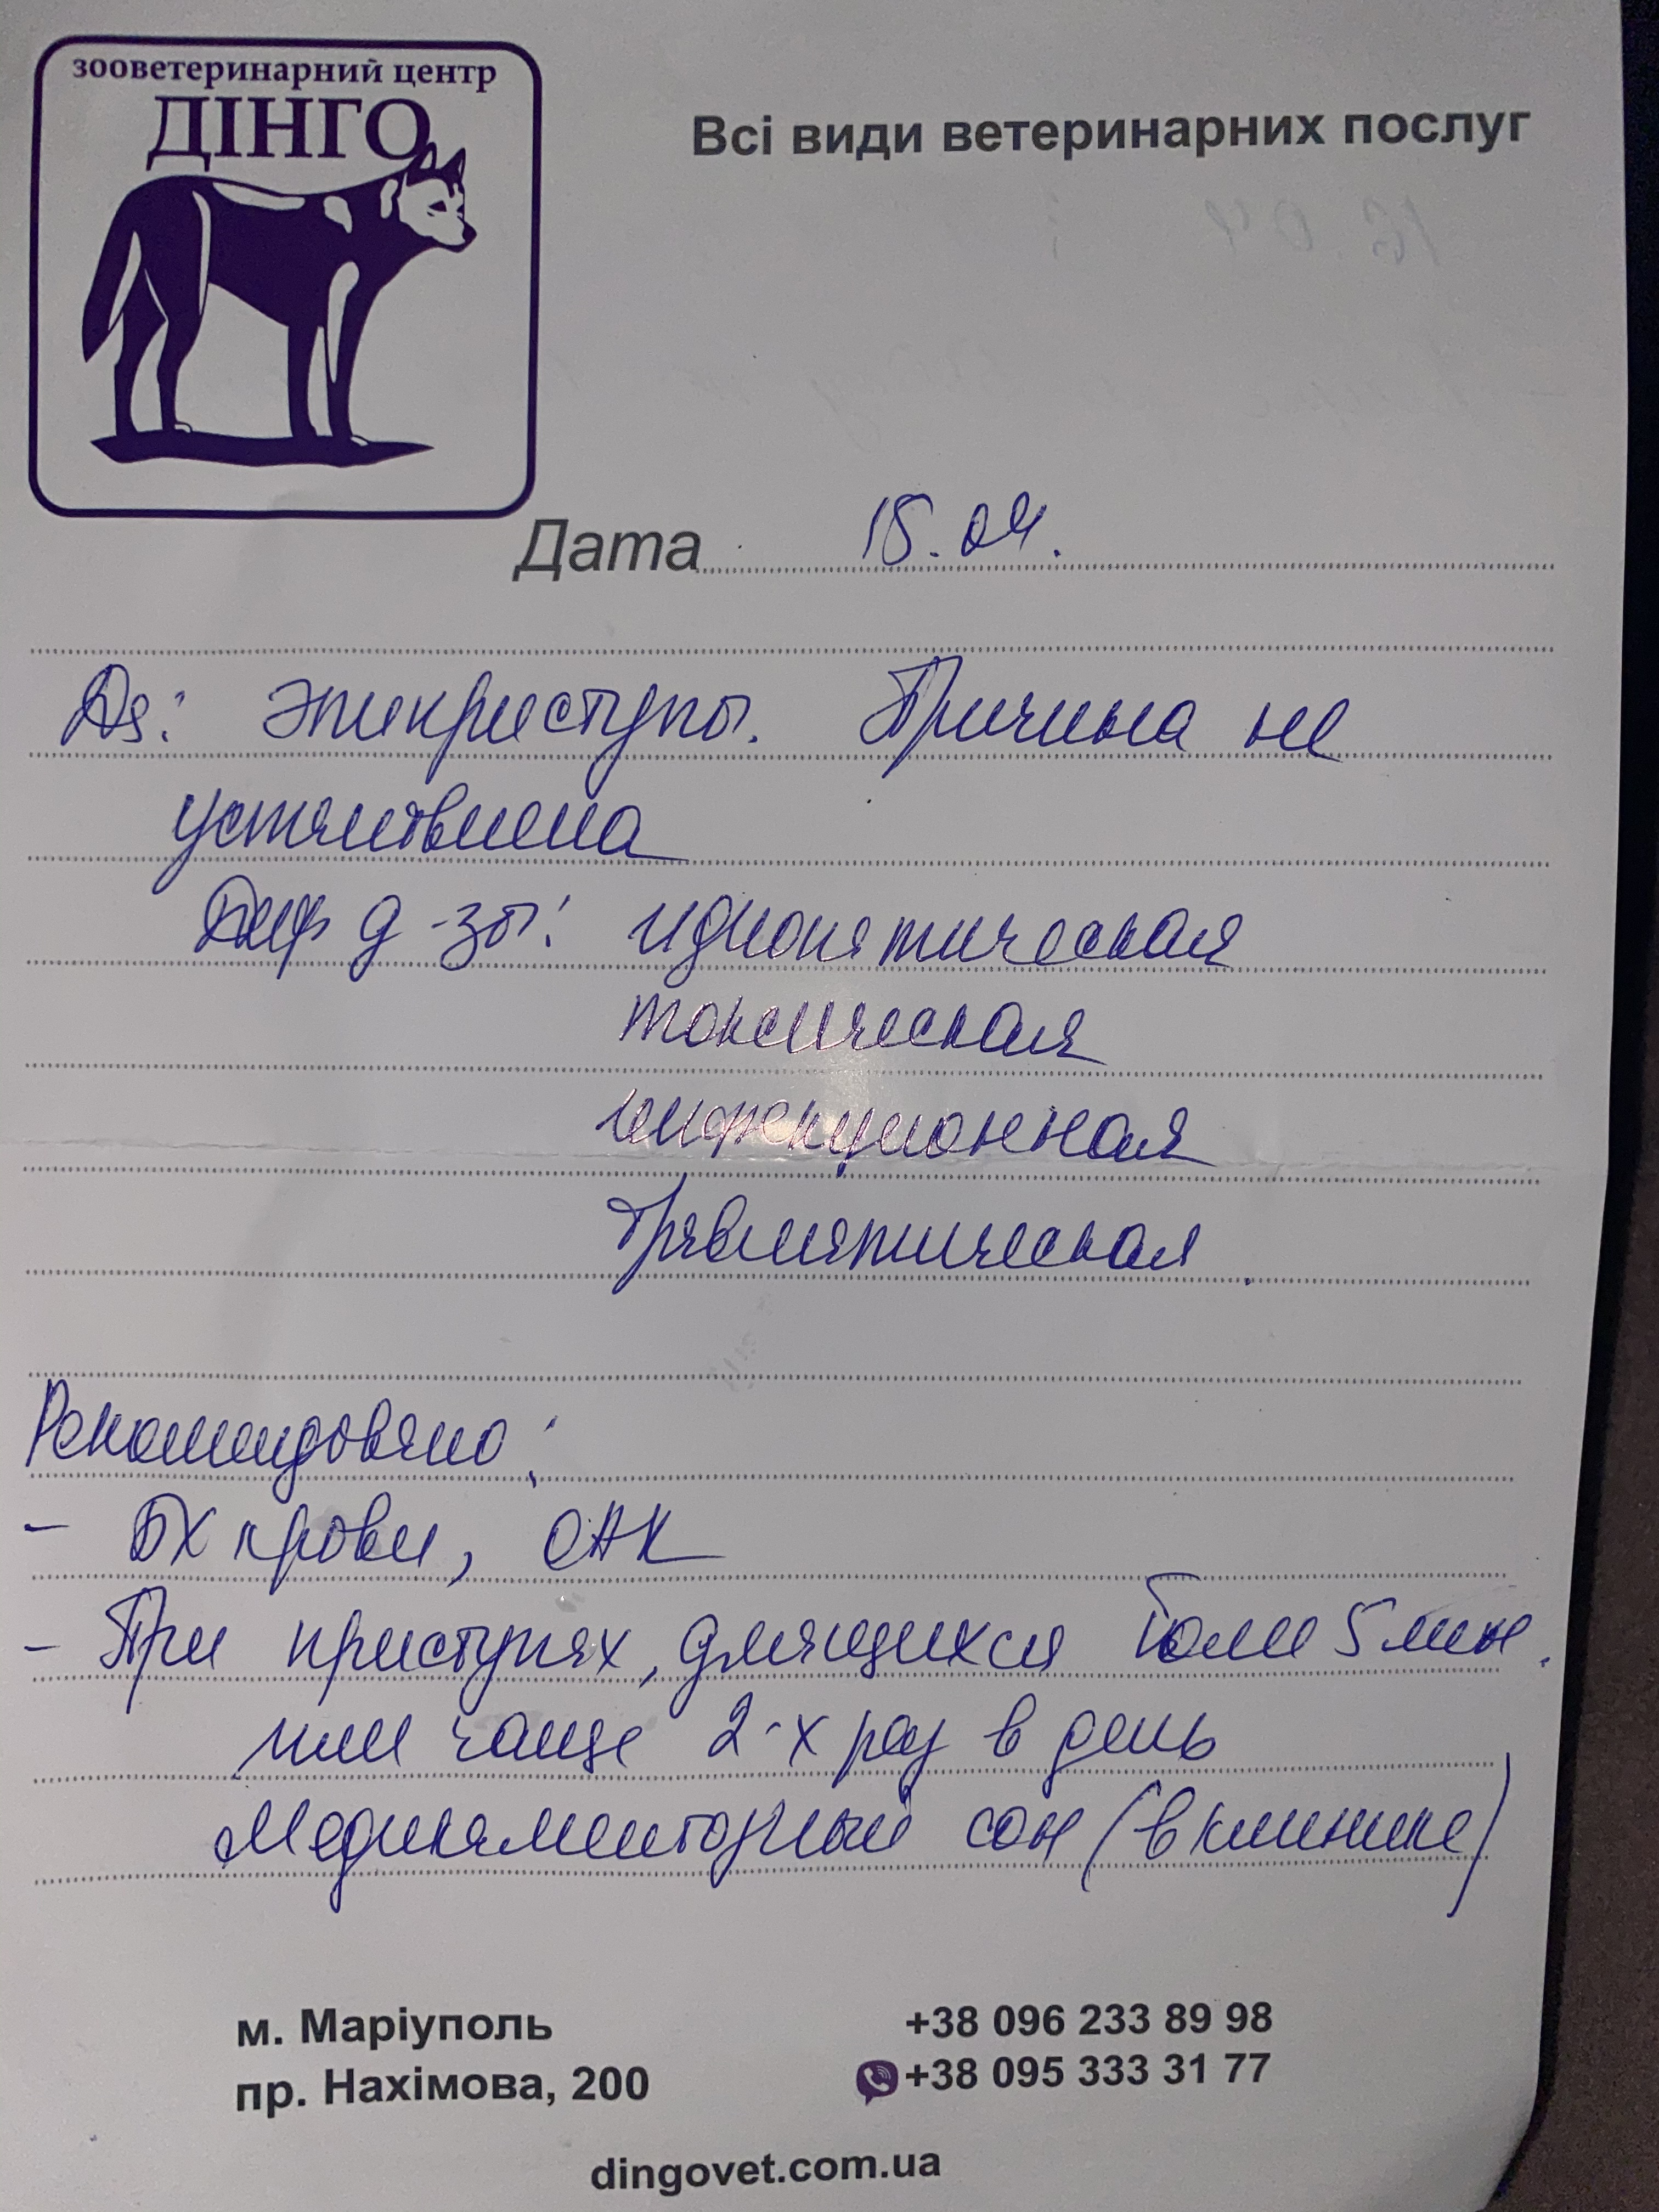 зооветеринарний центр
ДІНГО
Всі види ветеринарних послуг
Дата 15.04.
Ds: эпиприступы. Причина не
установлена
Диф д-зы: идиопатическая
токсическая
инфекционная
травматическая.
Рекомендовано:
- БХ крови, ОАК
- При приступах, длящихся более 5 мин.
или чаще 2-х раз в день
медикаментозный сон (в клинике)
м. Маріуполь
+38 096 233 89 98
пр. Нахімова, 200
+38 095 333 31 77
dingovet.com.ua